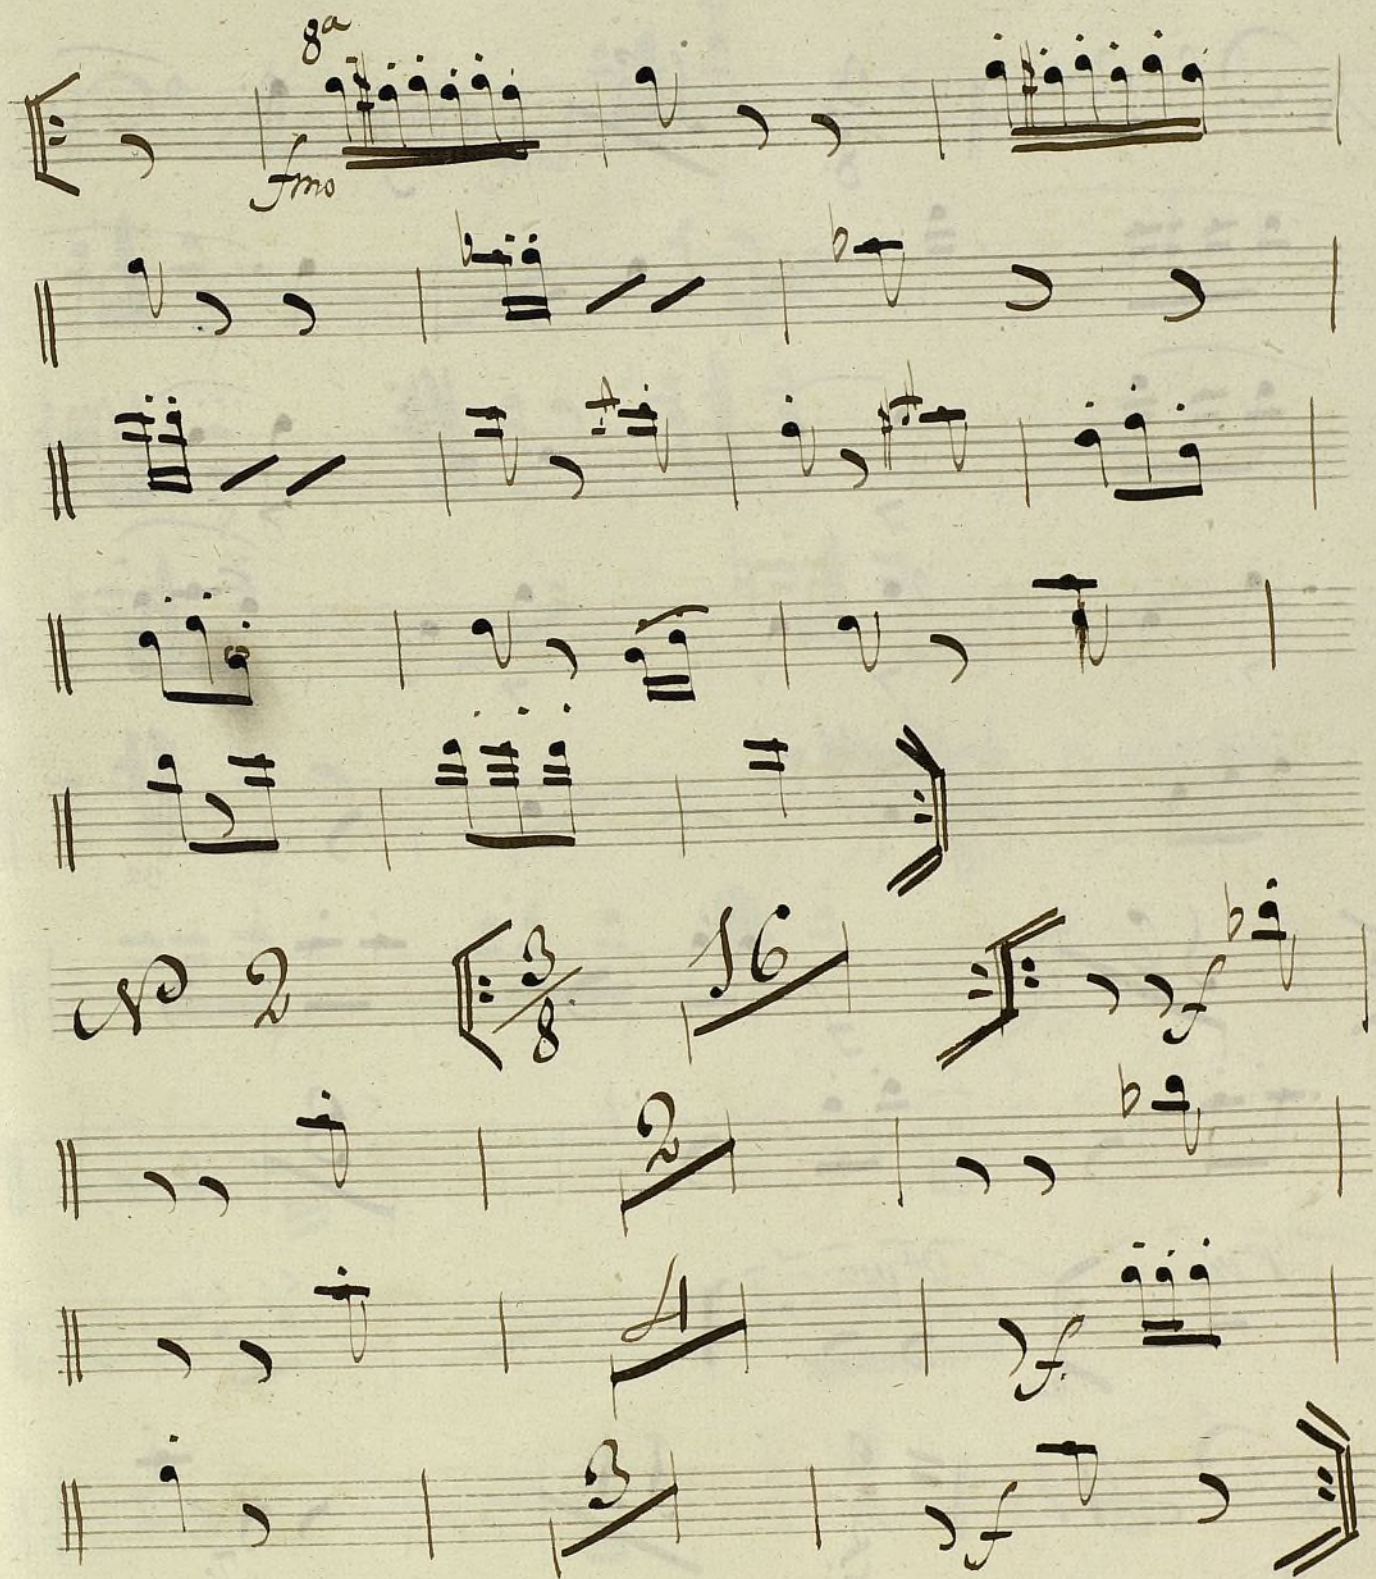 8a
fmo
No 2 3/8 16 f
2
4 f.
3 f